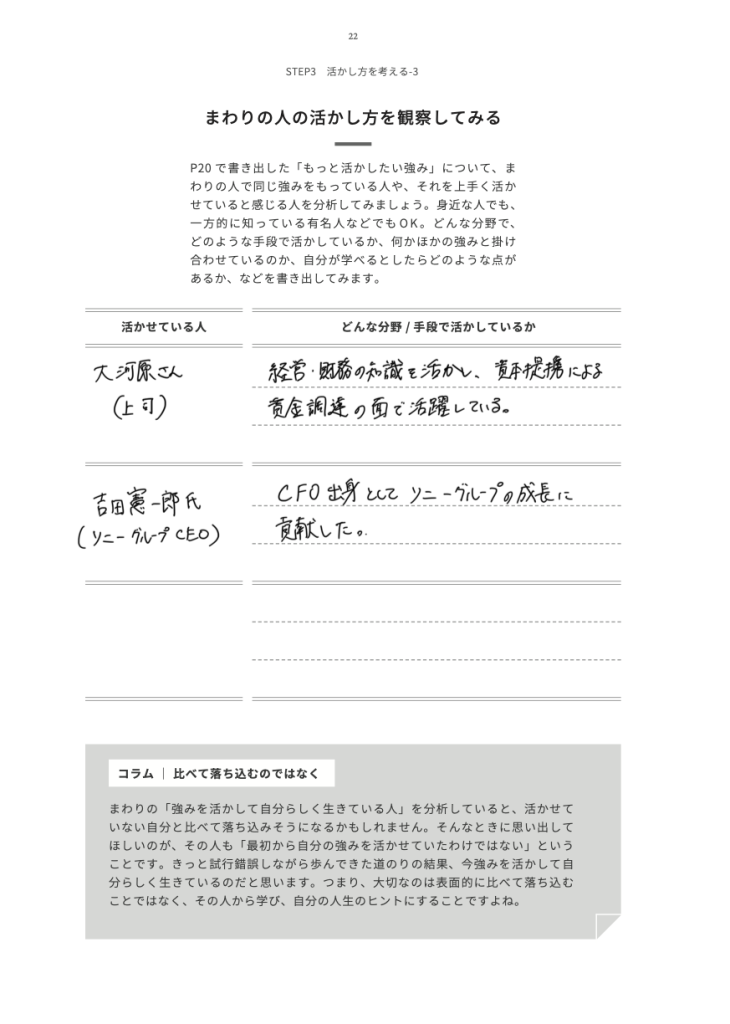 22
STEP3 活かし方を考える-3
まわりの人の活かし方を観察してみる
P20 で書き出した「もっと活かしたい強み」について、ま
わりの人で同じ強みをもっている人や、それを上手く活か
せていると感じる人を分析してみましょう。身近な人でも、
一方的に知っている有名人などでもOK。どんな分野で、
どのような手段で活かしているか、何かほかの強みと掛け
合わせているのか、自分が学べるとしたらどのような点が
あるか、などを書き出してみます。
活かせている人
どんな分野 / 手段で活かしているか
大河原さん
(上司)
経営・財務の知識を活かし、資本提携による
資金調達の面で活躍している。
吉田憲一郎氏
(ソニーグループCEO)
CFO出身としてソニーグループの成長に
貢献した。
コラム | 比べて落ち込むのではなく
まわりの「強みを活かして自分らしく生きている人」を分析していると、活かせて
いない自分と比べて落ち込みそうになるかもしれません。そんなときに思い出して
ほしいのが、その人も「最初から自分の強みを活かせていたわけではない」という
ことです。きっと試行錯誤しながら歩んできた道のりの結果、今強みを活かして自
分らしく生きているのだと思います。つまり、大切なのは表面的に比べて落ち込む
ことではなく、その人から学び、自分の人生のヒントにすることですよね。